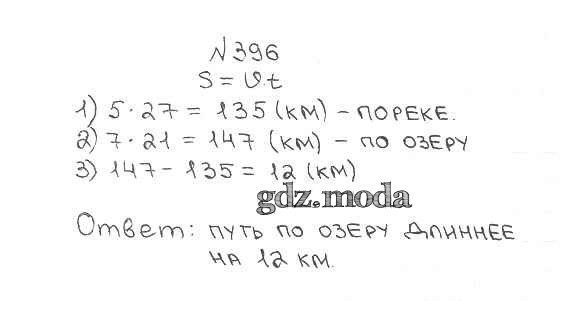 №396
S = v·t
1) 5·27 = 135 (км) – ПОРЕКЕ.
2) 7·21 = 147 (км) – ПО ОЗЕРУ
3) 147 – 135 = 12 (км)
gdz.moda
Ответ: ПУТЬ ПО ОЗЕРУ ДЛИННЕЕ
НА 12 КМ.